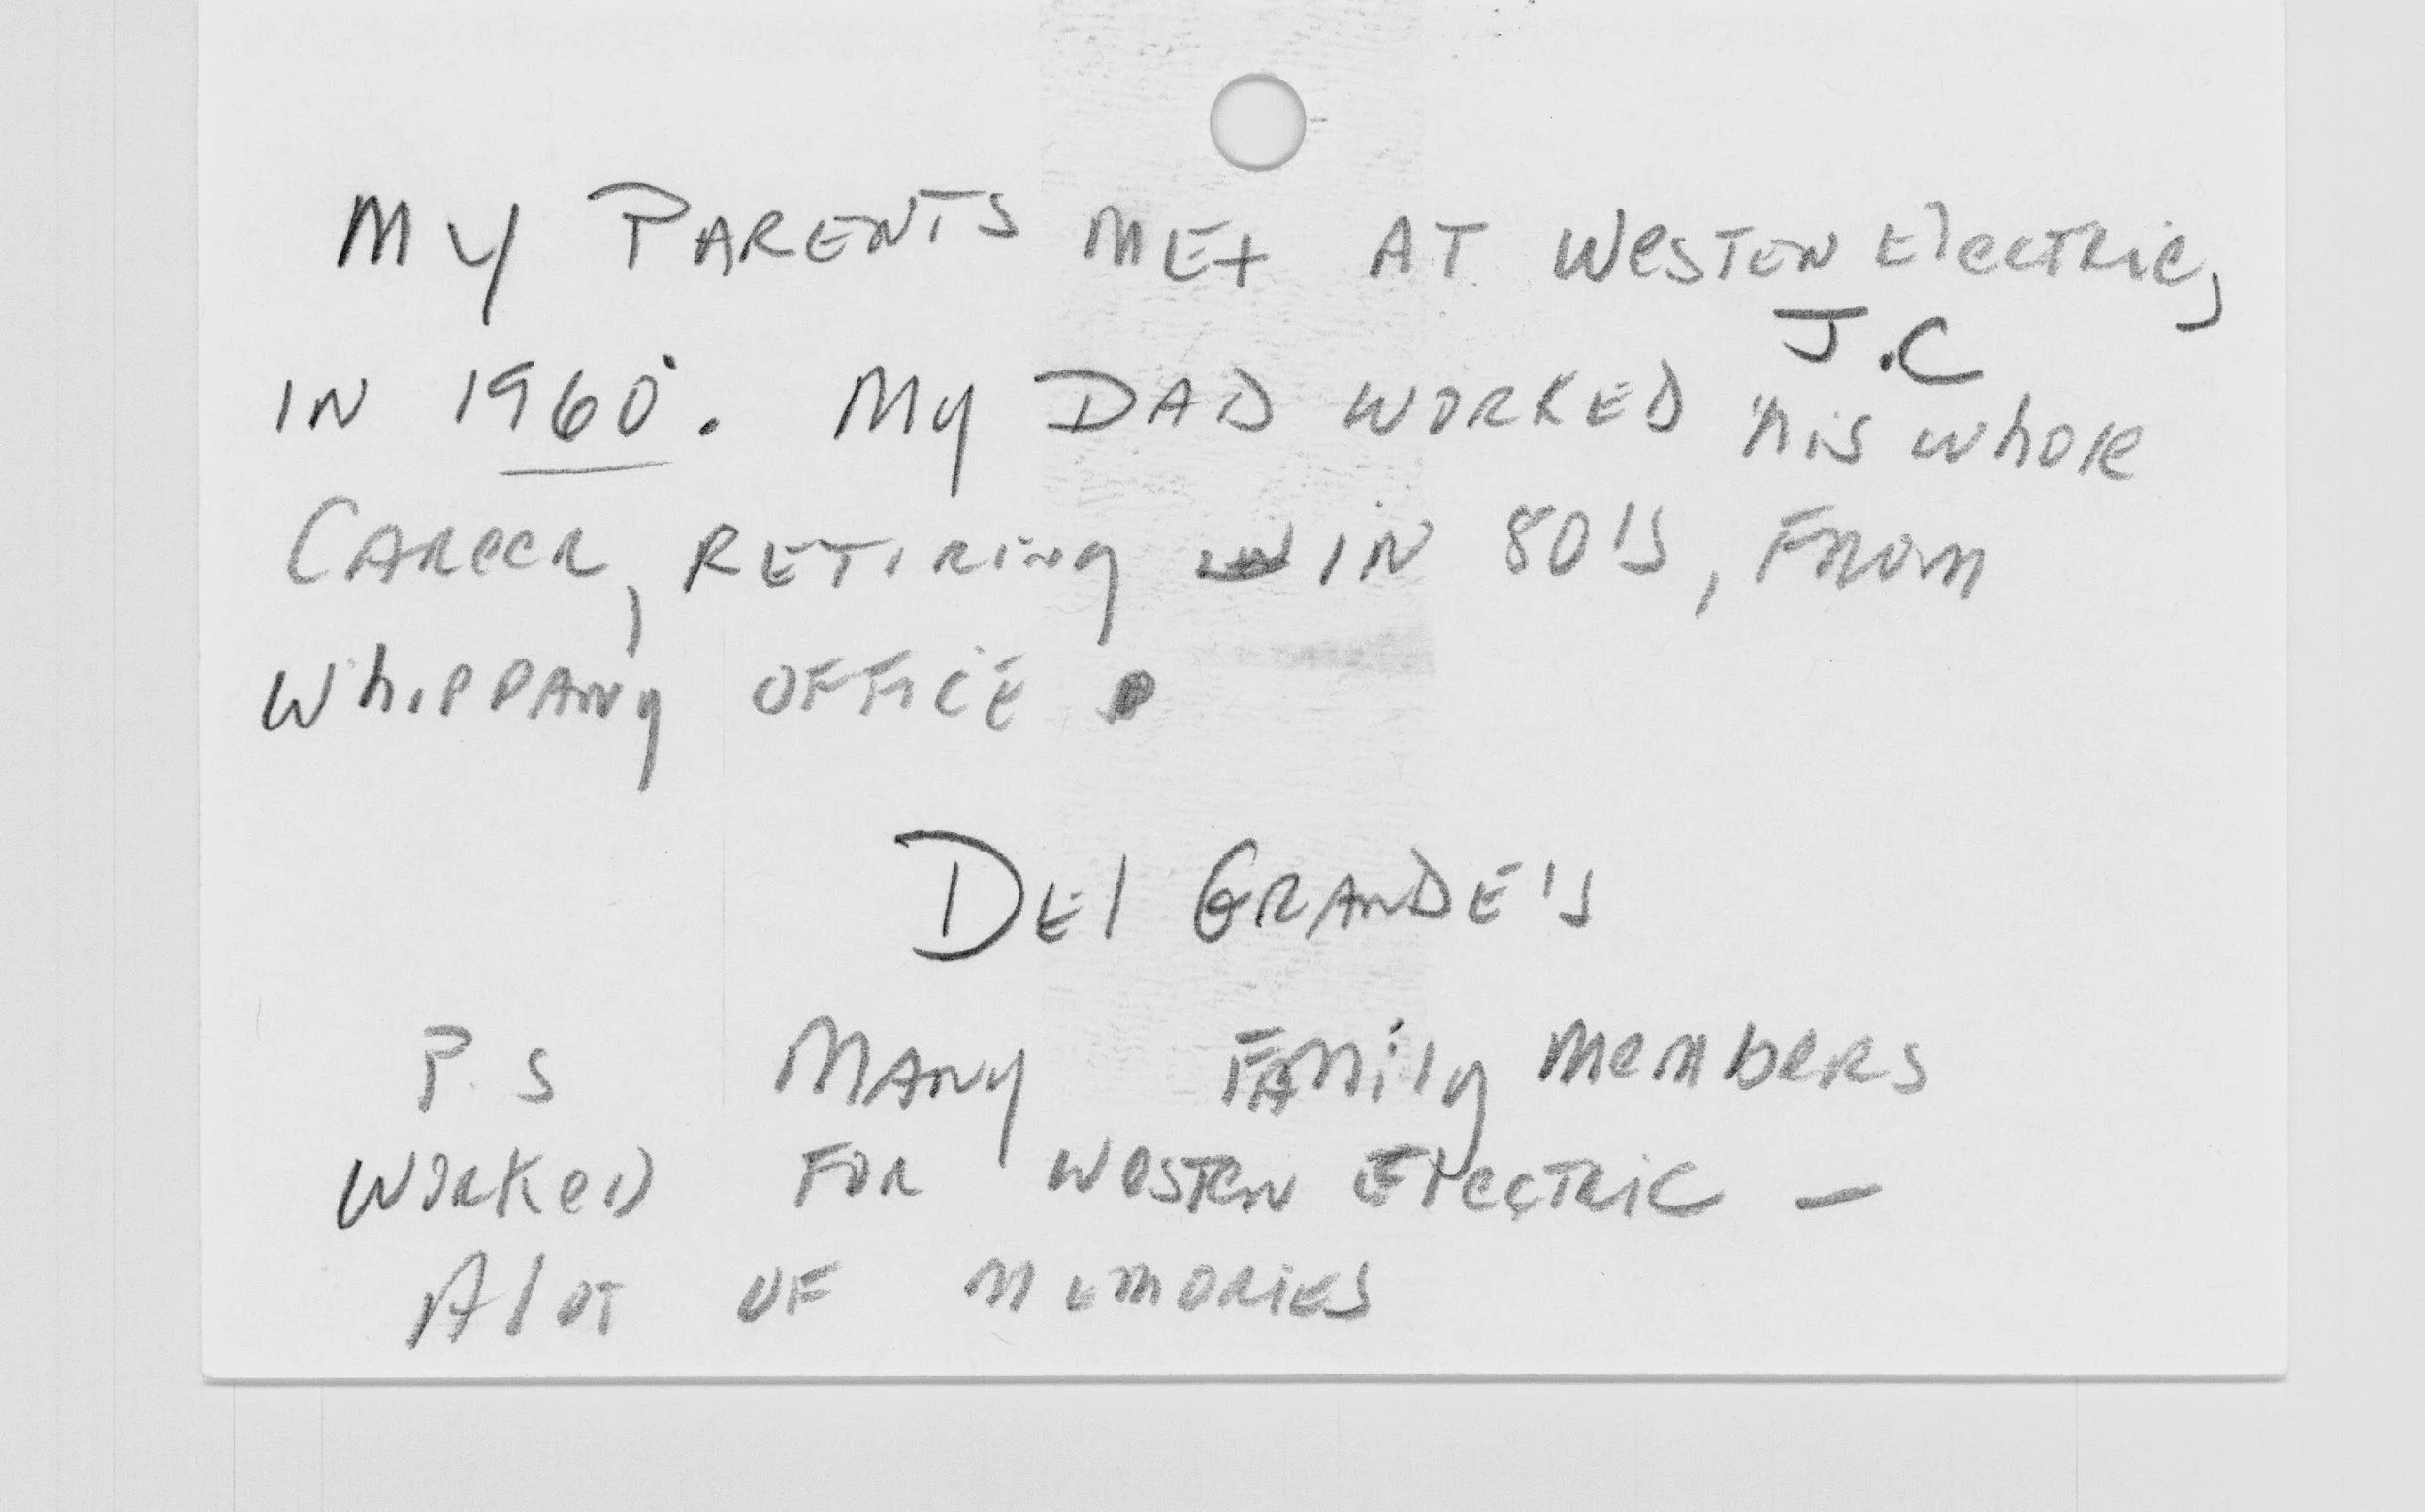 My PARENTS MEt AT WesTeN Electric,
J.C
IN 1960. My DAD WORKED his whole
CAReeR, RETiRing IN 80's, FROM
Whippany OFFiCE.
DEl GRANDE's
P.S MANy FAMily MembeRs
WORKeD FOR WesTRN ElecTRiC —
Alot OF MEMORiES